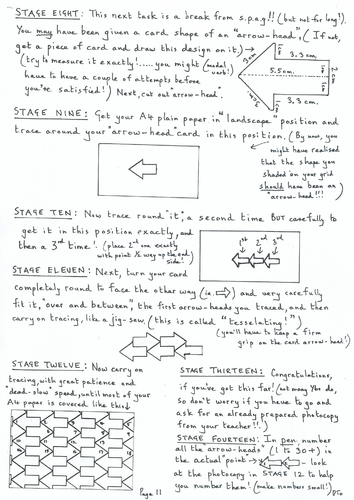 STAGE EIGHT: This next task is a break from s.p.a.g!! (but not for long!).
You may have been given a card shape of an "arrow-head", (If not,
get a piece of card and draw this design on it,)→
(try to measure it exactly!..... you might (modal verb!)
have to have a couple of attempts before
you're satisfied!) Next, cut out "arrow-head".
3cm
3.3cm.
5.5cm.
2cm
3.3cm
3cm.
STAGE NINE: Get your A4 plain paper in "landscape" position and
trace around your "arrow-head" card in this position. (By now, you
might have realised
that the shape you
shaded on your grid
should have been an
"arrow-head"!!!)
STAGE TEN: Now trace round "it", a second time BUT carefully to
get it in this position exactly, and
then a 3rd time! (place 2nd one exactly
with point ½ way up the end
side!)
1st 2nd 3rd
STAGE ELEVEN: Next, turn your card
completely round to face the other way (i.e. ⇨) and very carefully
fit it, "over and between", the first arrow-heads you traced, and then
carry on tracing, like a jig-saw. (this is called "tesselating!")
(you'll have to keep a firm
grip on the card arrow-head!)
STAGE TWELVE: Now carry on
tracing, with great patience and
"dead-slow" speed, until most of your
A4 paper is covered like this↓
STAGE THIRTEEN: Congratulations,
if you've got this far! (Not many Ybs do,
so don't worry if you have to go and
ask for an already prepared photocopy
from your teacher!!.)
STAGE FOURTEEN: In pen, number
all the arrow-heads" (1 to 30+) in
the actual "point→ – look
at the photocopy in STAGE 12 to help
you number them! (make numbers small!)
Page 11